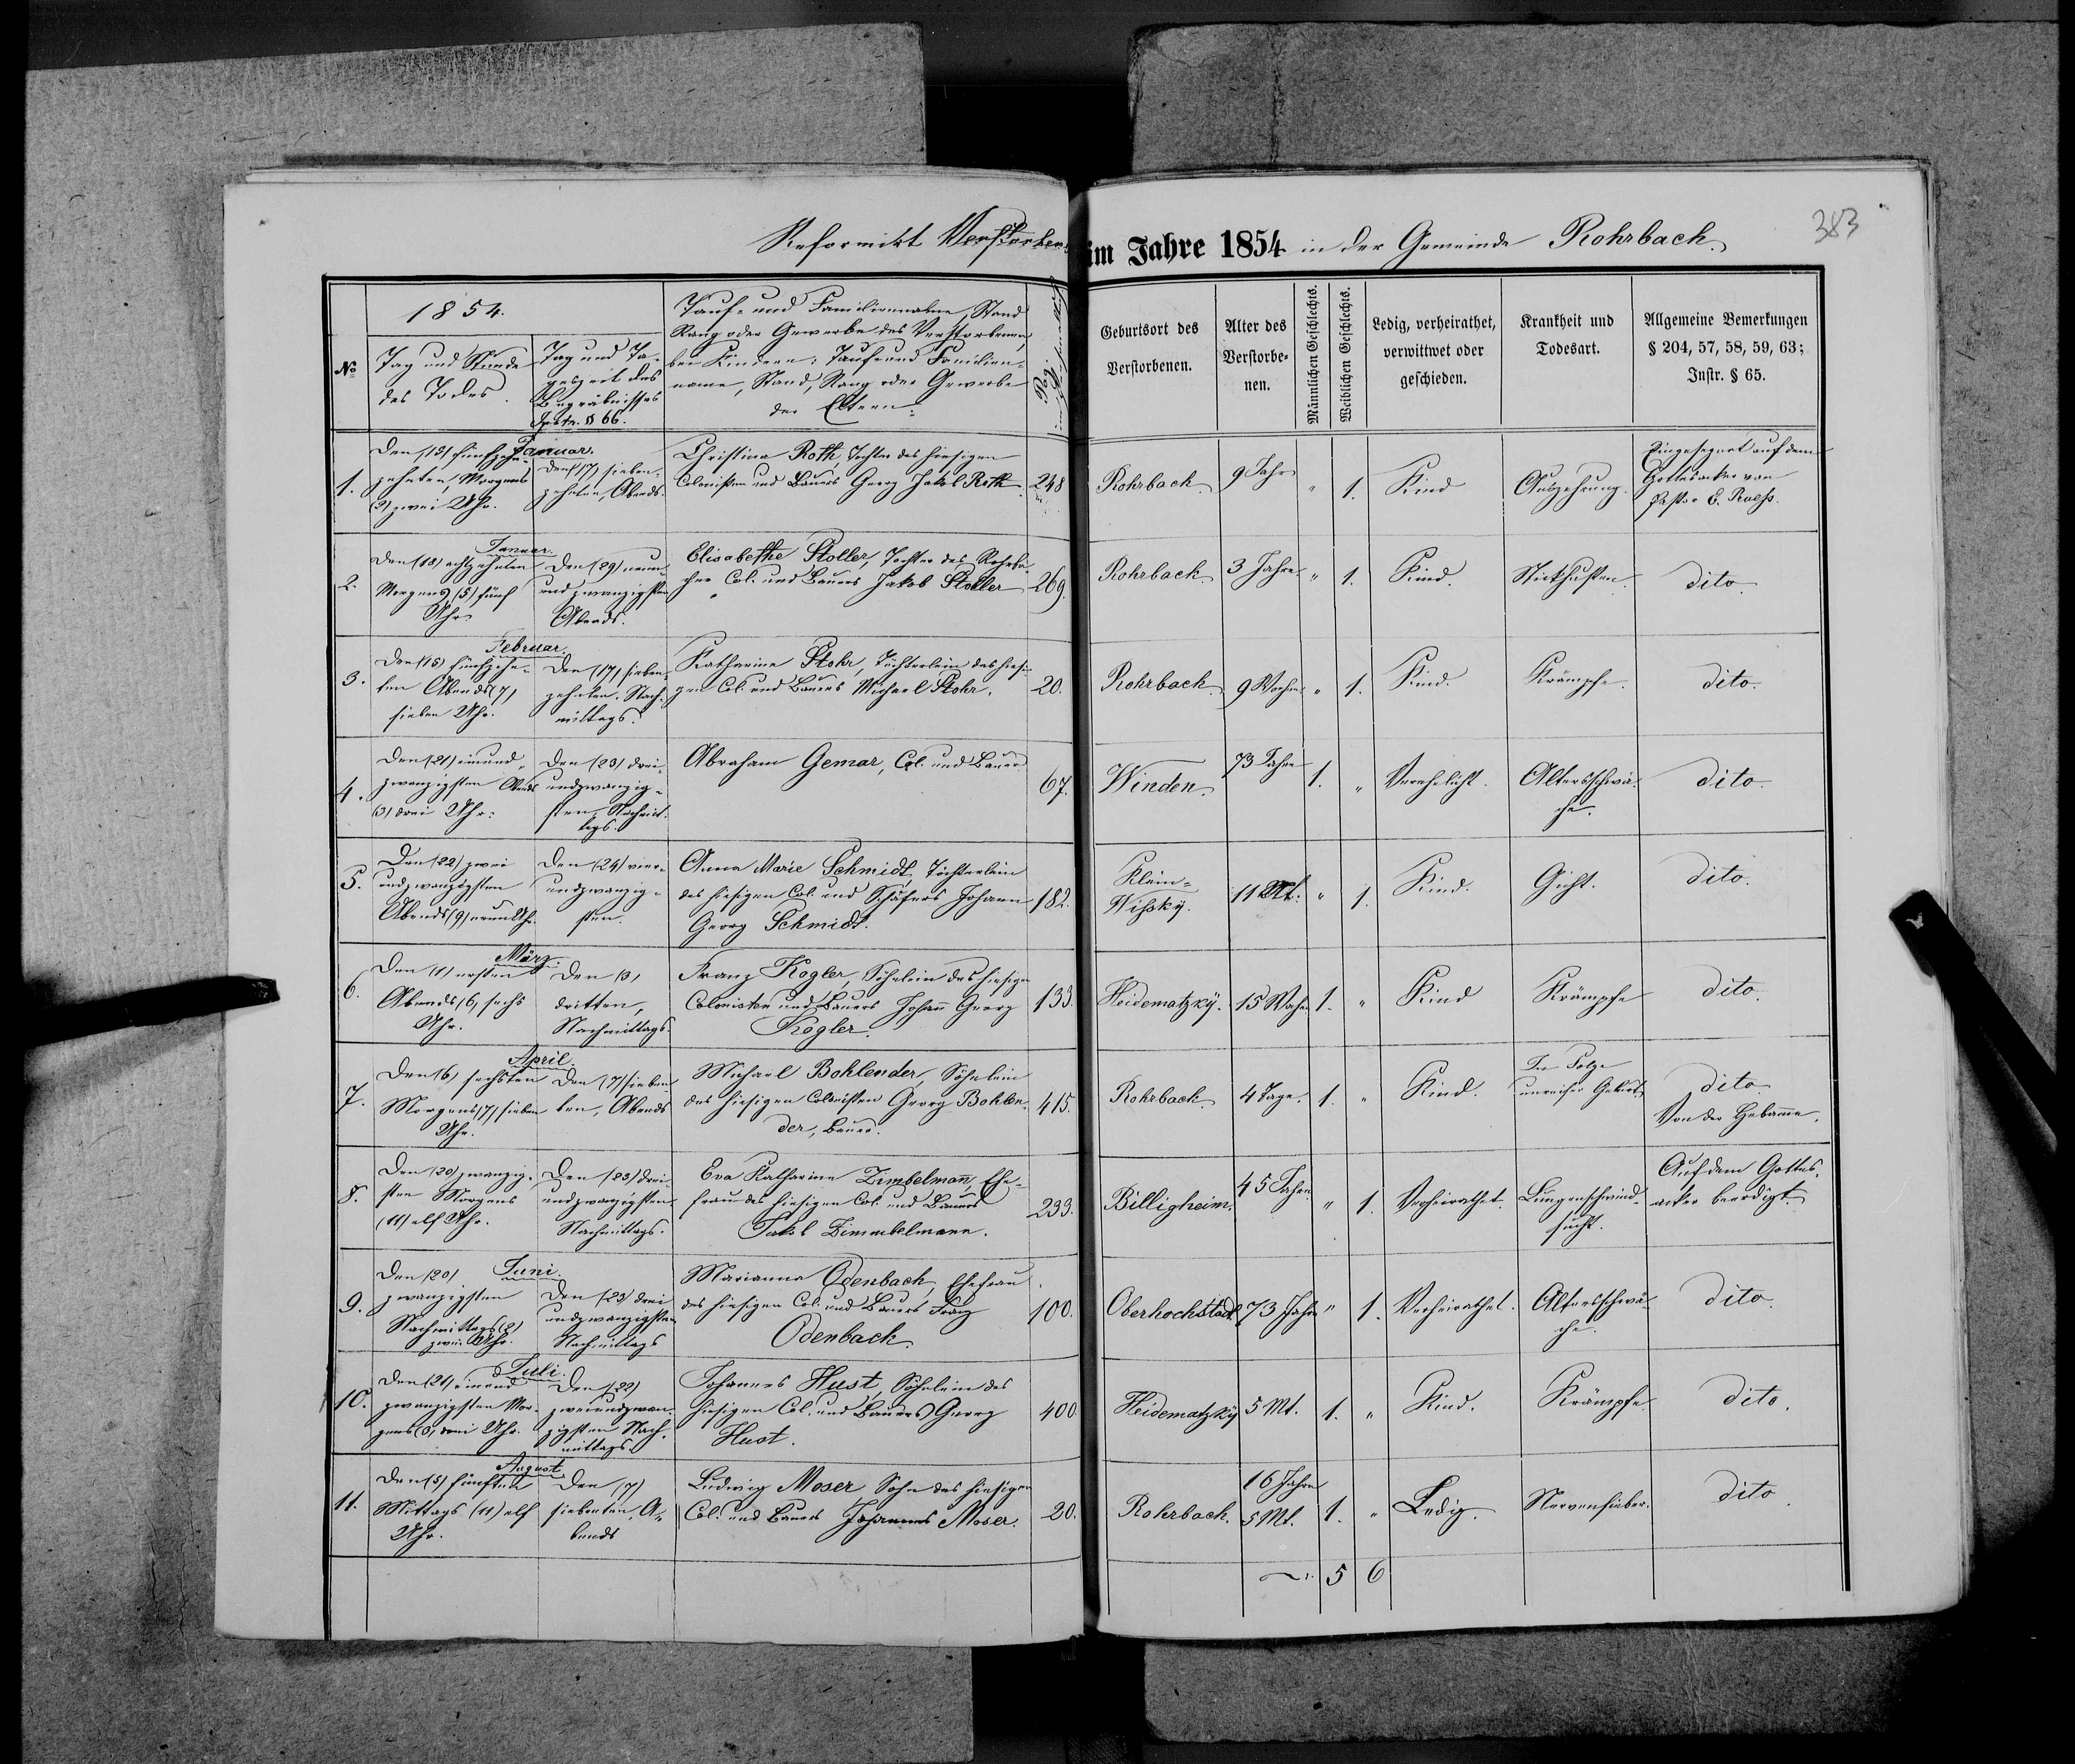 Reformirt Verstorbene
im Jahre 1854 in der Gemeinde Rohrbach.
383
№
1854.
Tag und Stunde
des Todes.
Tag und Ta-
geszeit des
Begräbnisses
Instr. § 66.
Tauf- und Familienname, Stand
Rang oder Gewerbe des Verstorbenen,
bei Kindern: Tauf- und Familien-
name, Stand, Rang oder Gewerbe
der Eltern.
Pag.
Geburtsort des
Verstorbenen.
Alter des
Verstorbe-
nen.
Männlichen Geschlechts.
Weiblichen Geschlechts.
Ledig, verheirathet,
verwittwet oder
geschieden.
Krankheit und
Todesart.
Allgemeine Bemerkungen
§ 204, 57, 58, 59, 63;
Instr. § 65.
Januar.
1.
Den (15) fünfze-
zehnten, Morgens
(2) zwei Uhr.
Den (17) sieben-
zehnten, Abends.
Christina Roth, Tochter des hiesigen
Colonisten und Bauers Georg Jakob Roth
248
Rohrbach.
9 Jahr
" 1.
Kind
Auszehrung.
Eingesegnet auf dem
Gottesacker von
Pastor E. Roess.
Januar.
2.
Den (18) achtzehnten
Morgens (5) fünf
Uhr.
Den (29) neun-
undzwanzigsten
Abends.
Elisabethe Stoller, Tochter des Rohrba-
cher Col. und Bauers Jakob Stoller
269.
Rohrbach.
3 Jahre
" 1.
Kind.
Stickhusten.
dito.
Februar.
3.
Den (15) fünfzehn-
ten Abends (7)
sieben Uhr.
Den (17) sieben-
zehnten, Nach-
mittags.
Katharine Stohr, Töchterlein des hiesi-
gen Col. und Bauers Michael Stohr.
20.
Rohrbach
9 Wochen
" 1.
Kind.
Krämpfe.
dito.
4.
Den (21) einund-
zwanzigsten Abends
(3) drei Uhr.
Den (23) drei-
undzwanzig-
sten, Nachmit-
tags.
Abraham Gemar, Col. und Bauer
67.
Winden.
73 Jahre
1. "
Verehelicht.
Altersschwä-
che.
dito.
5.
Den (22) zwei
undzwanzigsten
Abends (9) neun Uhr.
Den (24) vier-
undzwanzig-
sten.
Anna Marie Schmidt, Töchterlein
des hiesigen Col. und Schäfers Johann
Georg Schmidt.
182.
Klein=
Wissky.
11 Mt.
" 1.
Kind.
Gicht.
dito.
März.
6.
Den (1) ersten
Abends (6) sechs
Uhr.
Den (3)
dritten,
Nachmittags.
Franz Kogler, Söhnlein des hiesigen
Colonisten und Bauers Johann Georg
Kogler.
133.
Heidematzky.
15 Wochen
1. "
Kind
Krämpfe
dito.
April.
7.
Den (6) sechsten
Morgens (7) sieben
Uhr.
Den (7) sieben-
ten, Abends
Michael Bohlender, Söhnlein
des hiesigen Colonisten Georg Bohlen-
der, Bauer.
415.
Rohrbach.
4 Tage.
1. "
Kind.
In Folge
unreifer Geburt
dito
Von der Hebamme.
8.
Den (20) zwanzig-
sten Morgens
(11) elf Uhr.
Den (23) drei-
undzwanzigsten
Nachmittags.
Eva Katharine Zimbelmann, Ehe-
frau des hiesigen Col. und Bauers
Jakob Zimmbelmann.
233.
Billigheim.
45 Jahre.
" 1.
Verheirathet.
Lungenschwind-
sucht.
Auf dem Gottes-
acker beerdigt.
Juni.
9.
Den (20)
zwanzigsten
Nachmittags (2)
zwei Uhr.
Den (23) drei
undzwanzigsten
Nachmittags
Marianna Odenbach, Ehefrau
des hiesigen Col. und Bauers Franz
Odenbach.
100.
Oberhochstadt.
73 Jahre
" 1.
Verheirathet.
Altersschwä-
che.
dito.
Juli.
10.
Den (21) einund
zwanzigsten Mor-
gens (3) drei Uhr.
Den (22)
zweiundzwan-
zigsten Nach-
mittags.
Johannes Hust, Söhnlein des
hiesigen Col. und Bauers Georg
Hust.
400.
Heidematzky
5 Mt.
1. "
Kind.
Krämpfe
dito.
August.
11.
Den (5) fünften
Mittags (11) elf
Uhr.
Den (7)
siebenten, A-
bends
Ludwig Moser, Sohn des hiesigen
Col. und Bauers Johannes Moser.
20.
Rohrbach.
16 Jahre
5 Mt.
1. "
Ledig.
Nervenfieber.
dito.
5 6